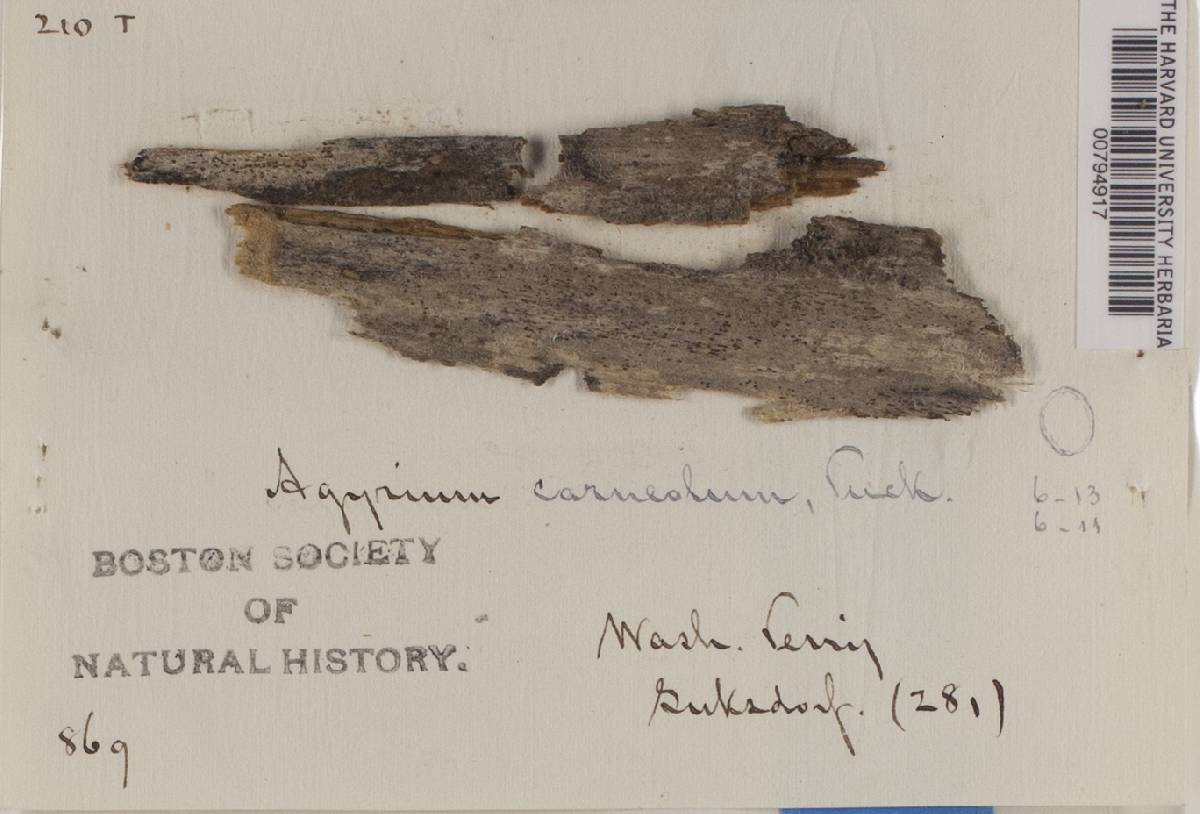 210 T
THE HARVARD UNIVERSITY HERBARIA
00794917
Agyrium carneolum, Tuck.
6-13
6-11
BOSTON SOCIETY
OF
NATURAL HISTORY.
Wash. Terriy
Suksdorf. (281)
869